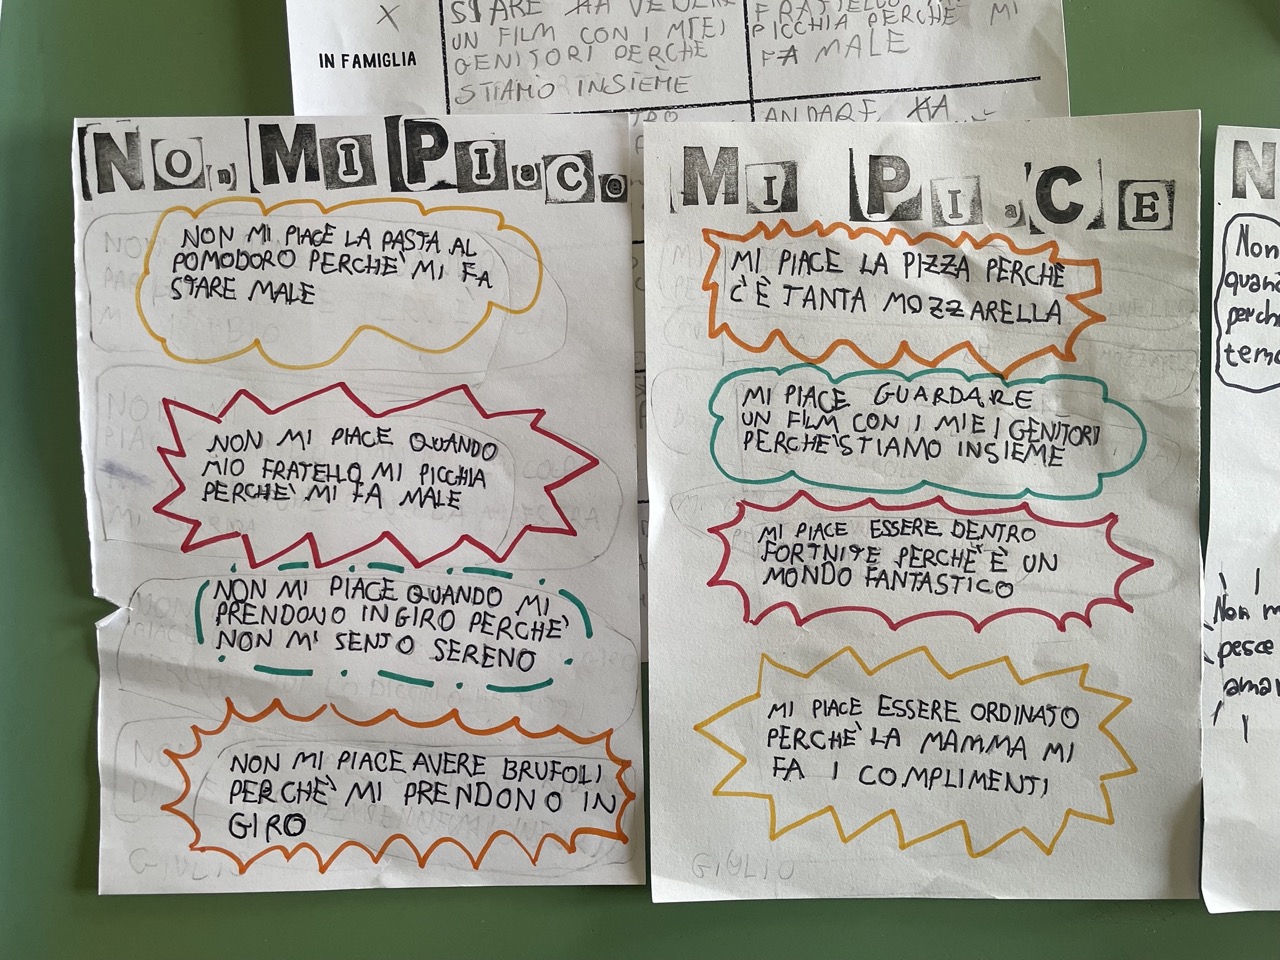 X
IN FAMIGLIA
UN FILM CON I MIEI
GENITORI PERCHÈ
STIAMO INSIEME
PICCHIA PERCHÈ MI
FA MALE
ANDARE
Non Mi PIaCe
NON MI PIACE LA PASTA AL
POMODORO PERCHE' MI FA
STARE MALE
NON MI PIACE QUANDO
MIO FRATELLO MI PICCHIA
PERCHE' MI FA MALE
NON MI PIACE QUANDO MI
PRENDONO IN GIRO PERCHE'
NON MI SENTO SERENO
NON MI PIACE AVERE BRUFOLI
PERCHE' MI PRENDONO IN
GIRO
GIULIO
MI PIaCE
MI PIACE LA PIZZA PERCHÈ
C'È TANTA MOZZARELLA
MI PIACE GUARDARE
UN FILM CON I MIEI GENITORI
PERCHE' STIAMO INSIEME
MI PIACE ESSERE DENTRO
FORTNITE PERCHE' È UN
MONDO FANTASTICO
MI PIACE ESSERE ORDINATO
PERCHE' LA MAMMA MI
FA I COMPLIMENTI
GIULIO
N
Non
Non m
pesce